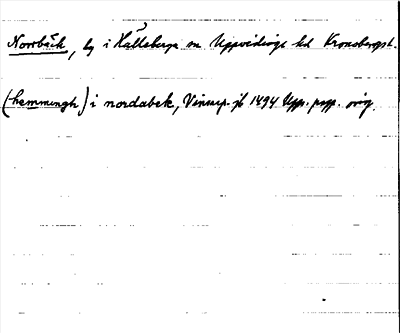 Norrbäck, by i Hälleberga sn Uppvidinge hd Kronobergsl.
(hemmingh) i nordabek, Vinsarp. jb 1494 Upps. papp. orig.